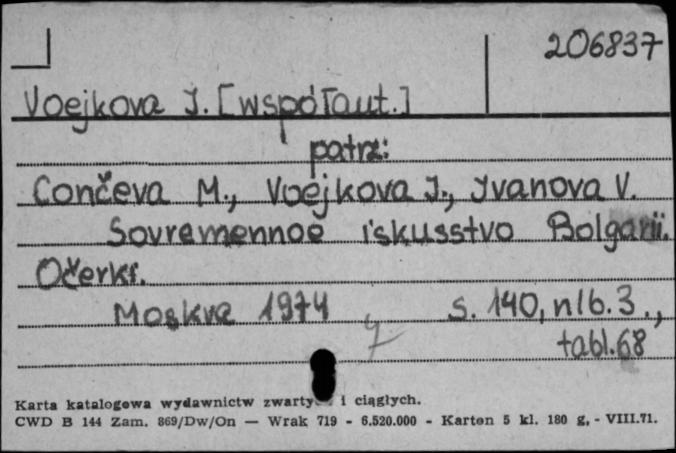 206837
Voejkova J. [współaut.]
patrz:
Cončeva M., Voejkova J., Jvanova V.
Sovremennoe iskusstvo Bolgarii.
Očerki.
Moskva 1974 s. 140, nlb. 3.,
tabl. 68
Karta katalogowa wydawnictw i ciągłych.
CWD B 144 Zam. 869/Dw/On — Wrak 719 - 6.520.000 - Karton 5 kl. 180 g. - VIII.71.